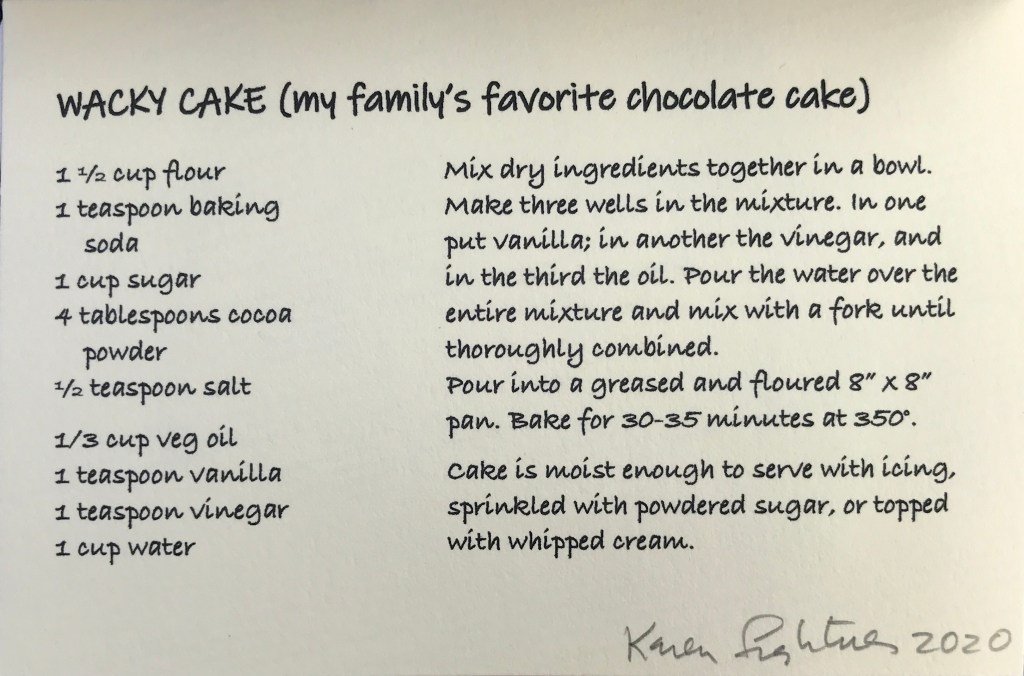 WACKY CAKE (my family's favorite chocolate cake)
1 ½ cup flour
1 teaspoon baking
soda
1 cup sugar
4 tablespoons cocoa
powder
½ teaspoon salt
1/3 cup veg oil
1 teaspoon vanilla
1 teaspoon vinegar
1 cup water
Mix dry ingredients together in a bowl.
Make three wells in the mixture. In one
put vanilla; in another the vinegar, and
in the third the oil. Pour the water over the
entire mixture and mix with a fork until
thoroughly combined.
Pour into a greased and floured 8" x 8"
pan. Bake for 30-35 minutes at 350°.
Cake is moist enough to serve with icing,
sprinkled with powdered sugar, or topped
with whipped cream.
Karen 2020